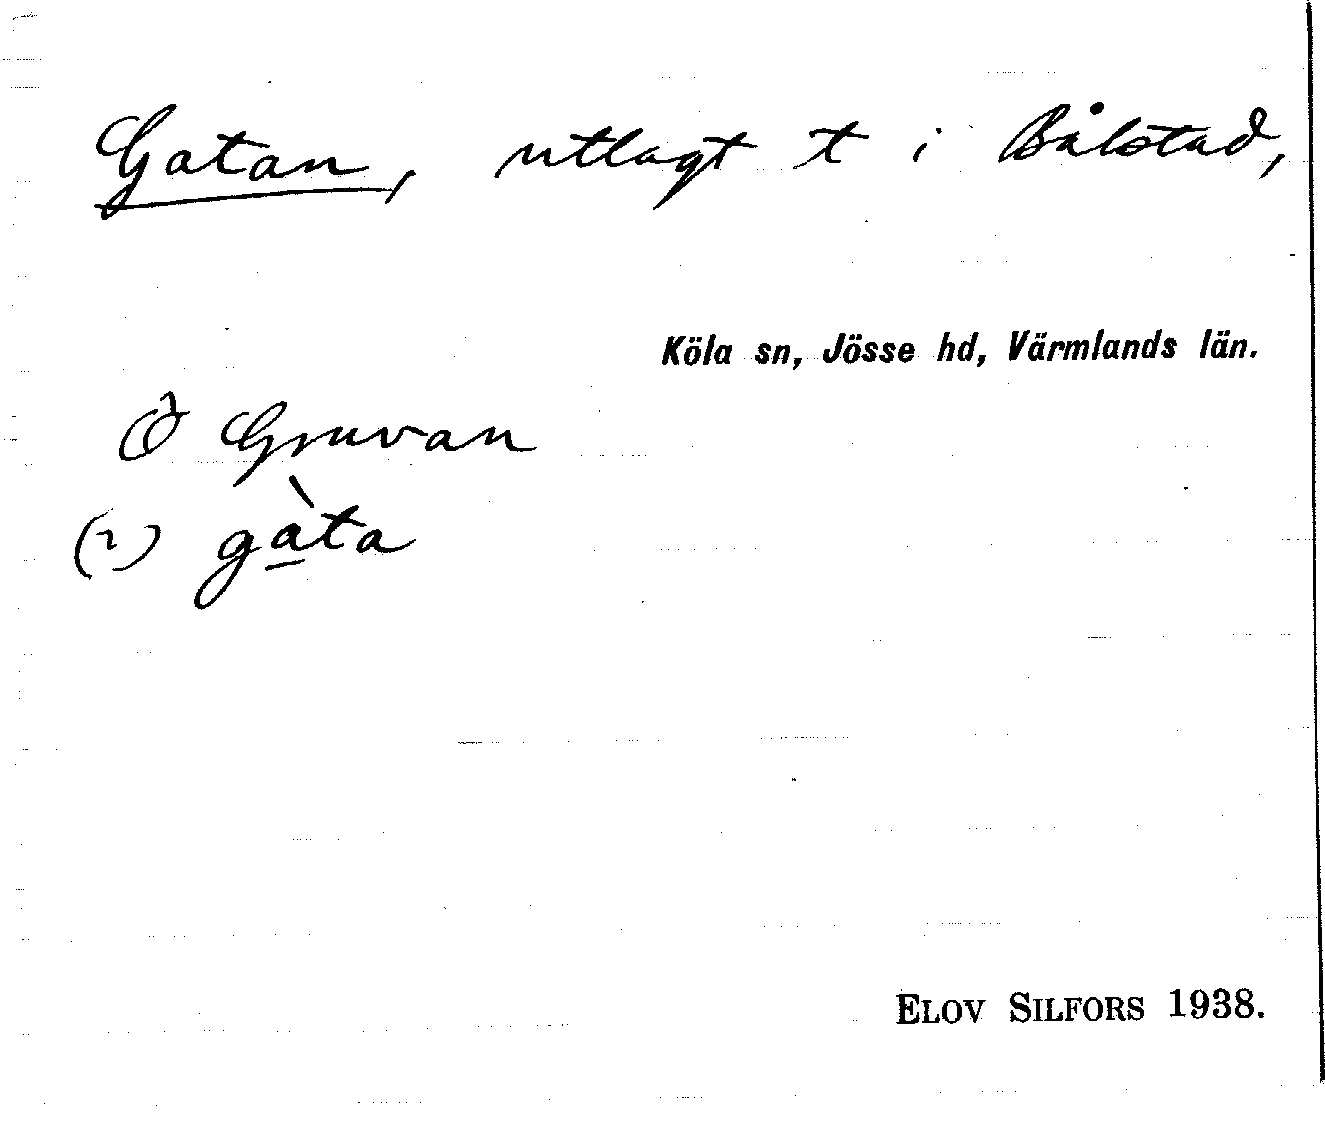 Gatan, utlagt t i Bålstad,
Köla sn, Jösse hd, Värmlands län.
Ö Gruvan
(2) gàta
ELOV SILFORS 1938.